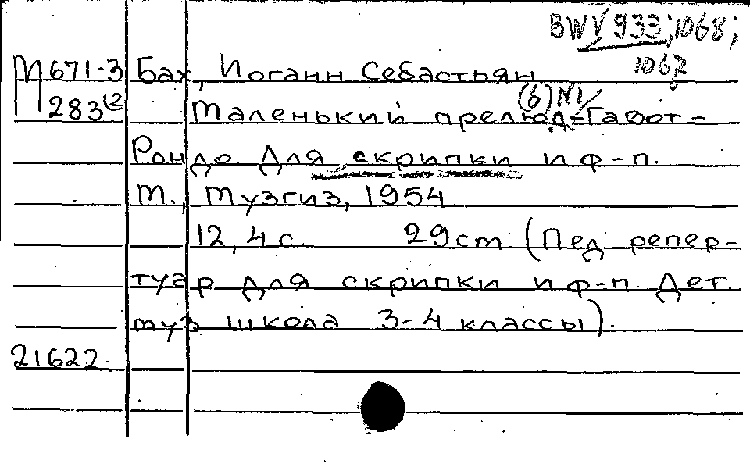 BWV 933; 1068;
1067
М671-3 Бах, Иоганн Себастьян
283(2 Маленький прелюд-Гавот-
(6) N1
Рондо Для скрипки и ф-п.
М., Музгиз, 1954
12, 4 с. 29 cm (Пед репер-
туар для скрипки и ф-п. Дет.
муз школа 3-4 классы).
21622